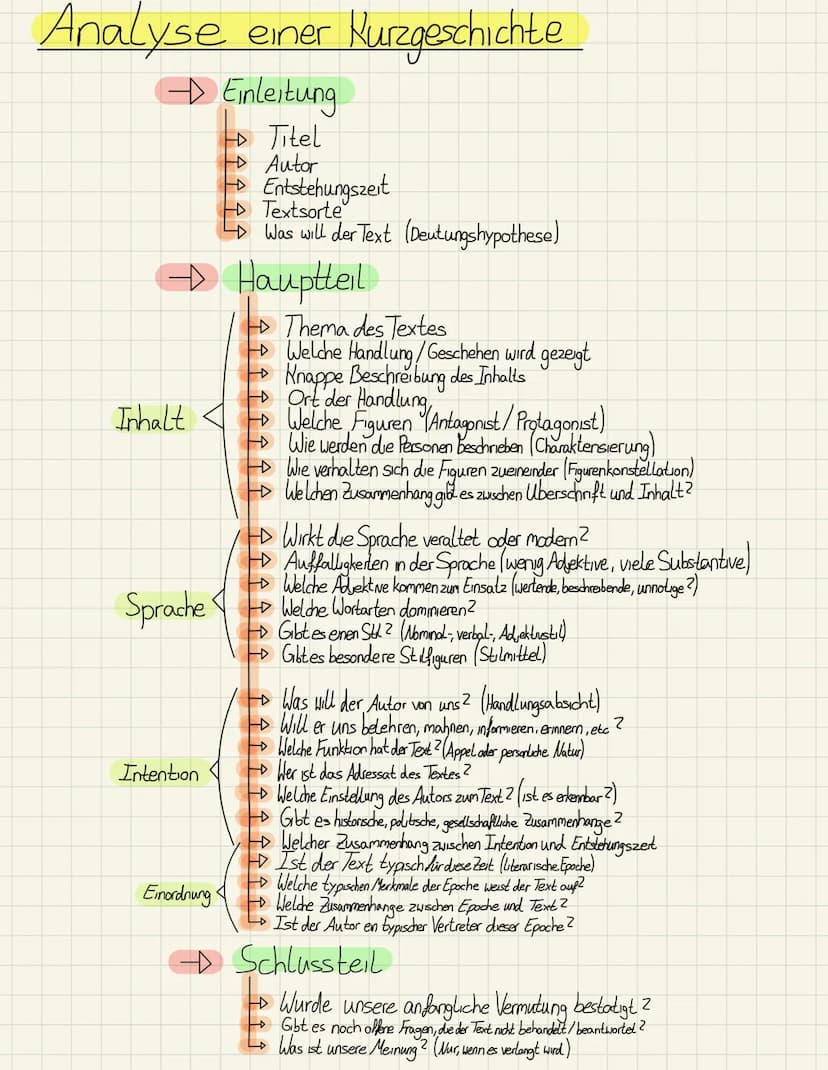 Analyse einer Kurzgeschichte
Einleitung
Titel
Autor
Entstehungszeit
Textsorte
Was will der Text (Deutungshypothese)
Hauptteil
Inhalt
Thema des Textes
Welche Handlung/Geschehen wird gezeigt
Knappe Beschreibung des Inhalts
Ort der Handlung
Welche Figuren (Antagonist/Protagonist)
Wie werden die Personen beschrieben (Charakterisierung)
Wie verhalten sich die Figuren zueineinder (Figurenkonstellation)
Welchen Zusammenhang gibt es zwischen Überschrift und Inhalt?
Sprache
Wirkt die Sprache veraltet oder modern?
Auffälligkeiten in der Sprache (wenig Adjektive, viele Substantive)
Welche Adjektive kommen zum Einsatz (wertende, beschreibende, unnötige?)
Welche Wortarten dominieren?
Gibt es einen Stil? (Nominal-, verbal-, Adjektivstil)
Gibt es besondere Stilfiguren (Stilmittel)
Intention
Was will der Autor von uns? (Handlungsabsicht)
Will er uns belehren, mahnen, informieren, erinnern, etc?
Welche Funktion hat der Text? (Appel oder persönliche Natur)
Wer ist das Adressat des Textes?
Welche Einstellung des Autors zum Text? (ist es erkennbar?)
Gibt es historische, politische, gesellschaftliche Zusammenhänge?
Welcher Zusammenhang zwischen Intention und Entstehungszeit
Einordnung
Ist der Text typisch für diese Zeit (literarische Epoche)
Welche typischen Merkmale der Epoche weist der Text auf?
Welche Zusammenhänge zwischen Epoche und Text?
Ist der Autor en typischer Vertreter dieser Epoche?
Schlussteil
Wurde unsere anfängliche Vermutung bestätigt?
Gibt es noch offene Fragen, die der Text nicht behandelt/beantwortet?
Was ist unsere Meinung? (Nur, wenn es verlangt wird)